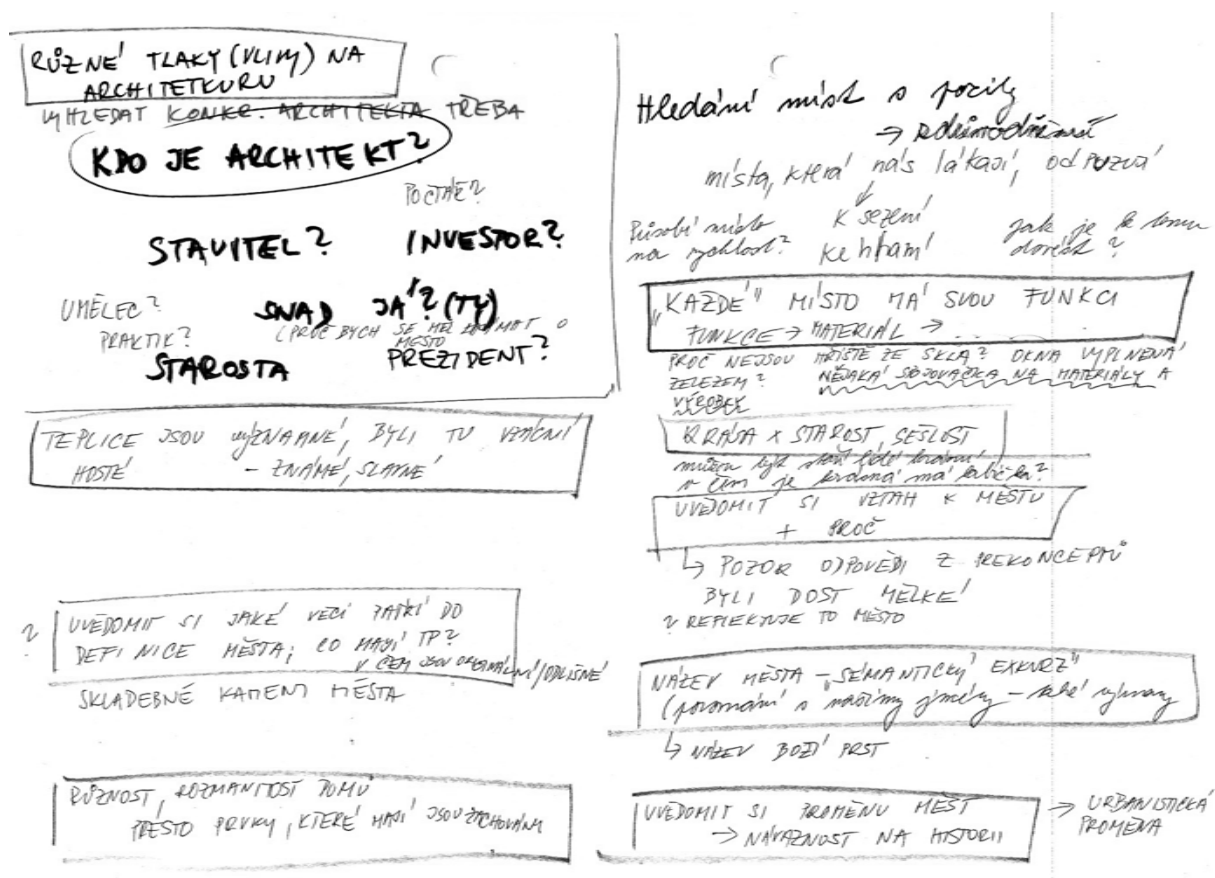 RŮZNÉ TLAKY (VLIVY) NA
ARCHITETKURU
VYHLEDAT KONKR. ARCHITEKTA TŘEBA
KDO JE ARCHITEKT?
POČTAŘ?
STAVITEL? INVESTOR?
UMĚLEC?
SNAD JÁ? (TY)
PRAKTIK?
(PROČ BYCH SE MĚL ZAJÍMAT O
MĚSTO
STAROSTA PREZIDENT?
TEPLICE JSOU VÝZNAMNÉ, BYLI TU VZÁCNÍ
HOSTÉ - ZNÁMÉ, SLAVNÉ
? UVĚDOMIT SI JAKÉ VĚCI PATŘÍ DO
DEFINICE MĚSTA; CO MAJÍ TP?
V ČEM JSOU ORIGINÁLNÍ/ODLIŠNÉ
SKLADEBNÉ KAMENY MĚSTA
RŮZNOST, ROZMANITOST DOMŮ
PŘESTO PRVKY, KTERÉ MAJÍ JSOU ZACHOVÁNY
Hledání míst s pocity
→
místa, která nás lákají, odpuzují
Působí místo na rychlost?
k sezení
ke hraní
jak je k tomu
dovést?
„KAŽDÉ" MÍSTO MÁ SVOU FUNKCI
FUNKCE → MATERIÁL → . . . . .
PROČ NEJSOU HŘIŠTĚ ZE SKLA? OKNA VYPLNĚNÁ
ŽELEZEM? NĚJAKÁ SPOJOVAČKA NA MATERIÁLY A
VÝROBKY
KRÁSA X STAROST, SEŠLOST
můžou být staří lidé krásní
v čem je krásná má babička?
UVĚDOMIT SI VZTAH K MĚSTU
+ PROČ
↳ POZOR ODPOVĚDI Z PREKONCEPTŮ
BYLI DOST MĚLKÉ
? REFLEKTUJE TO MĚSTO
NÁZEV MĚSTA - „SÉMANTICKÝ EXKURZ"
(porovnání s našimi jmény - také významy
↳ NÁZEV BOŽÍ PRST
UVĚDOMIT SI PROMĚNU MĚST
→ NÁVAZNOST NA HISTORII
→ URBANISTICKÁ
PROMĚNA